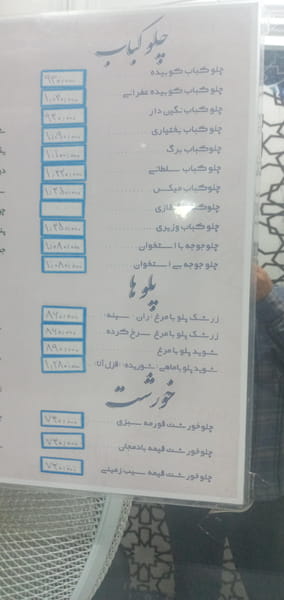 چلو کباب
چلوکباب کوبیده ۹۲۰,۰۰۰
چلوکباب کوبیده زعفرانی ۱,۰۲۰,۰۰۰
چلوکباب نگین دار ۹۲۰,۰۰۰
چلوکباب بختیاری ۱,۰۹۰,۰۰۰
چلوکباب برگ ۱,۱۰۰,۰۰۰
چلوکباب سلطانی
چلوکباب میکس
چلوکباب
چلوکباب وزیری
چلوجوجه با استخوان ۱,۰۸۰,۰۰۰
چلوجوجه بی استخوان ۱,۰۸۰,۰۰۰
پلو ها
زرشک پلو با مرغ (ران - سینه)
زرشک پلو با مرغ سرخ کرده
شوید پلو با مرغ ۸۹۰,۰۰۰
شوید پلو با ماهی (شوریده) (قزل آلا) ۱,۲۸۰,۰۰۰
خورشت
چلوخورشت قورمه سبزی ۷۳۰,۰۰۰
چلوخورشت قیمه بادمجان ۷۳۰,۰۰۰
چلوخورشت قیمه سیب زمینی ۷۳۰,۰۰۰